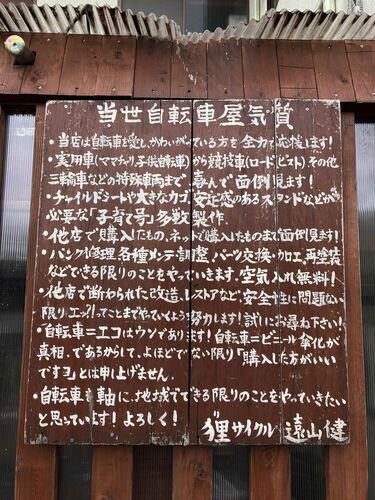 当世自転車屋気質
・当店は自転車を愛し、かわいがっている方を全力で応援します!
・実用車(ママチャリ、子供自転車)から競技車(ロード、ピスト)その他
三輪車などの特殊車両まで喜んで面倒見ます!
・チャイルドシートや大きなカゴ、安定感のあるスタンドなどが
必要な「子育て号」多数製作
・他店で購入したもの、ネットで購入したものまで面倒見ます!
・パンク修理、各種メンテ、調整、パーツ交換・加工、再塗装
などできる限りのことをやっていきます。空気入れ無料!
・他店で断わられた改造、レストアなど、安全性に問題ない
限り、エッ?ってことまでやっていくよう努力します!試しにお尋ね下さい!
・自転車=エコはウソであります!自転車=ビニール傘化が
真相。であるからして、よほどでない限り「購入した方がいい
ですヨ」とは申し上げません。
・自転車を軸に、地域でできる限りのことをやっていきたい
と思っています!よろしく!
狸サイクル 遠山健